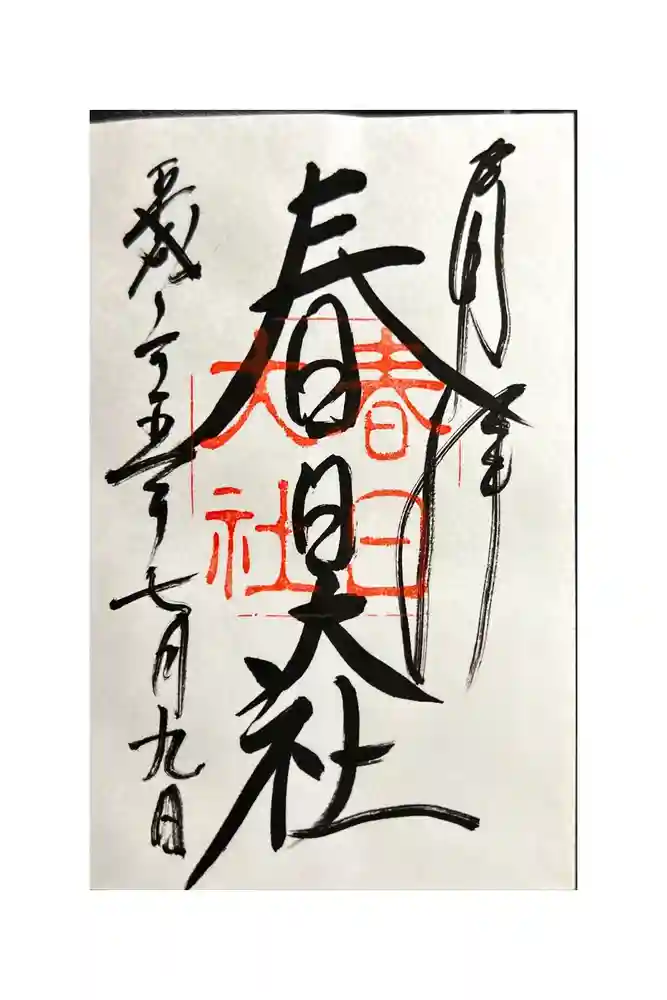 春日大社
平成二十五年七月九日
春日
大社